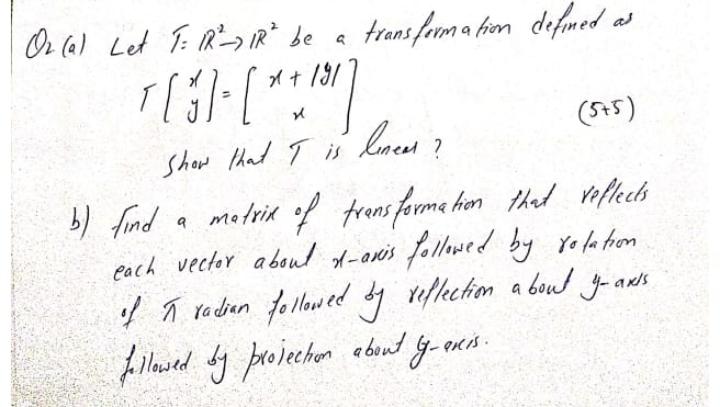 Q2 (a) Let T: ℝ² → ℝ² be a transformation defined as
T [x y] = [x + |y| x]
(5+5)
show that T is linear ?
b) find a matrix of transformation that reflects
each vector about x-axis followed by rotation
of π radian followed by reflection about y-axis
followed by projection about y-axis.